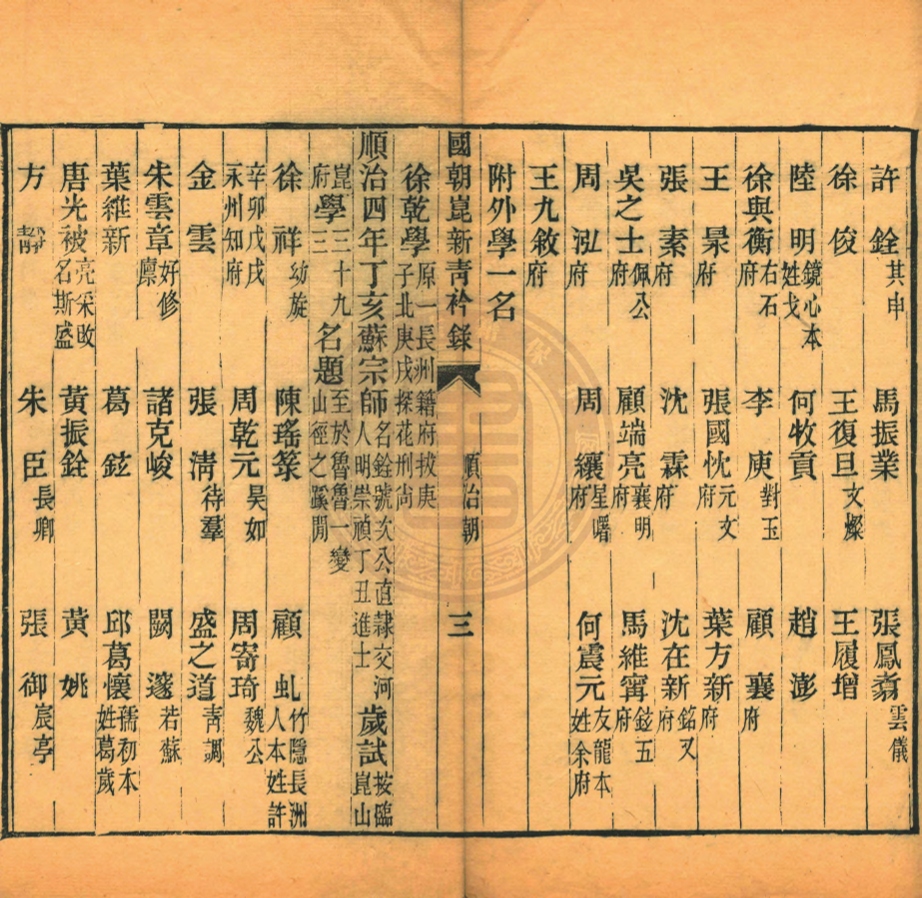 許銓其申 馬振業 張鳳翥雲儀
徐俊 王復旦文燦 王履增
陸明鏡心本姓戈 何牧貢 趙澎
徐與衡右石府 李庚對玉 顧襄府
王杲府 張國忱元文府 葉方新府
張素府 沈霖府 沈在新銘又府
吳之士佩公府 顧端亮襄明府 馬維寗鉉五府
周泓府 周纕星曙府 何震元友龍本姓余府
王九敘府
附外學一名
國朝崑新青衿錄 順治朝 三
徐乾學原一長洲籍府拔庚子北庚戌探花刑尚
順治四年丁亥蘇宗師名銓號次公直隸交河人明崇禎丁丑進士歲試按臨崑山
崑學三十九府學三名題至於魯魯一變山徑之蹊閒
徐祥幼旋 陳瑤笈 顧虬竹隱長洲人本姓許
辛卯戊戌永州知府 周乾元昊如 周寄琦魏公
金雲 張淸待羣 盛之道靑調
朱雲章好修廪 諸克峻 闕邃若蘇
葉維新 葛鉉 邱葛懷孺初本姓葛歲
唐光被亮采改名斯盛 黃振銓 黃姚
方靜 朱臣長卿 張御宸亭